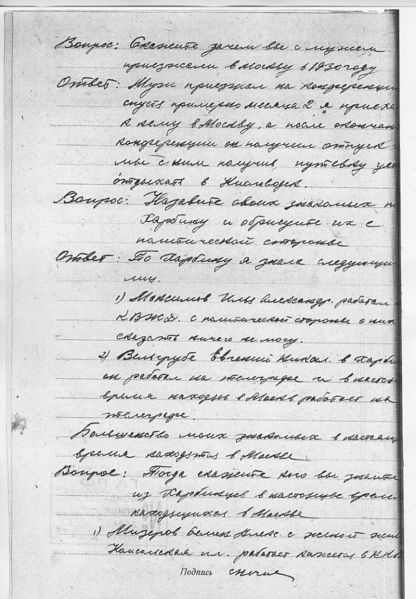 Вопрос: Скажите зачем вы с мужем
приезжали в Москву в 1930 году
Ответ: Муж приезжал на конференцию
спустя примерно месяца 2 я приеха
к нему в Москву, а после окончан
конференции он получил отпуск и
мы с ним получив путевку уех
отдыхать в Кисловодск.
Вопрос: Назовите своих знакомых п
Харбину и обрисуйте их с
политической стороны
Ответ: По Харбину я знала следующи
лиц.
1) Максимов Илья Александр. работал
КВЖД. с политической стороны о них
сказать ничего не могу.
2) Евгений Никол. в Харби
он работал на телеграфе и в настоя
время находясь в Москве работает на
телеграфе.
Большинство моих знакомых в настоящ
время находятся в Москве
Вопрос: Тогда скажите кого вы знаете
из Харбинцев в настоящее время
находящихся в Москве
1) Мизеров с женой жив
пл. работает кажется в
Подпись